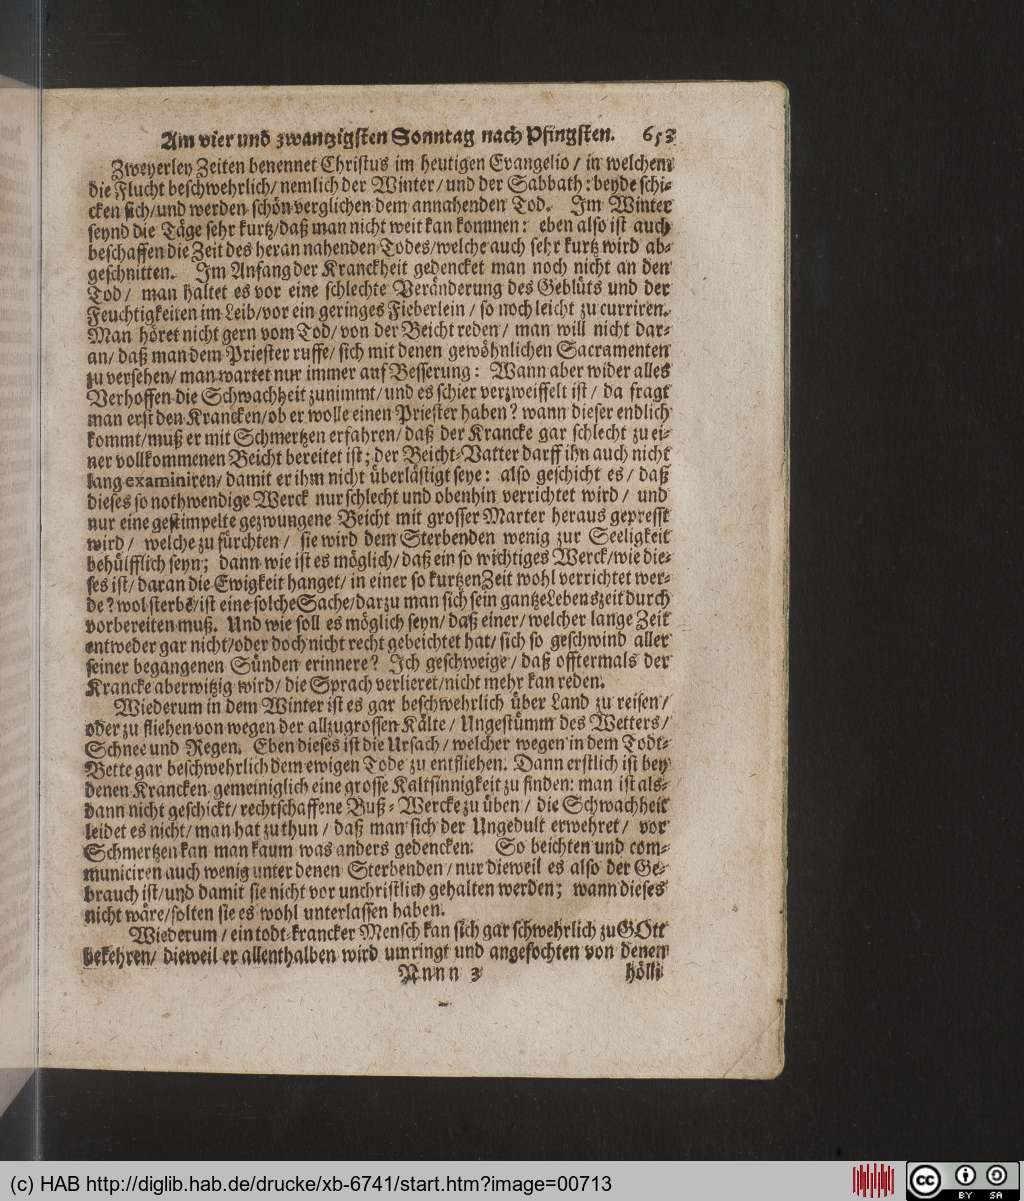 Am vier und zwantzigsten Sonntag nach Pfingsten. 653
Zweyerley Zeiten benennet Christus im heutigen Evangelio / in welchem
die Flucht beschwehrlich / nemlich der Winter / und der Sabbath: beyde schi-
cken sich / und werden schön verglichen dem annahenden Tod. Im Winter
seynd die Täge sehr kurtz / daß man nicht weit kan kommen: eben also ist auch
beschaffen die Zeit des heran nahenden Todes / welche auch sehr kurtz wird ab-
geschnitten. Im Anfang der Kranckheit gedencket man noch nicht an den
Tod / man haltet es vor eine schlechte Veränderung des Geblüts und der
Feuchtigkeiten im Leib / vor ein geringes Fieberlein / so noch leicht zu curriren.
Man höret nicht gern vom Tod / von der Beicht reden / man will nicht dar-
an / daß man dem Priester ruffe / sich mit denen gewöhnlichen Sacramenten
zu versehen / man wartet nur immer auf Besserung: Wann aber wider alles
Verhoffen die Schwachheit zunimmt / und es schier verzweiffelt ist / da fragt
man erst den Krancken / ob er wolle einen Priester haben? wann dieser endlich
kommt / muß er mit Schmertzen erfahren / daß der Krancke gar schlecht zu ei-
ner vollkommenen Beicht bereitet ist; der Beicht-Vatter darff ihn auch nicht
lang examiniren / damit er ihm nicht überlästigt seye: also geschicht es / daß
dieses so nothwendige Werck nur schlecht und obenhin verrichtet wird / und
nur eine gestimpelte gezwungene Beicht mit grosser Marter heraus gepresst
wird / welche zu fürchten / sie wird dem Sterbenden wenig zur Seeligkeit
behülfflich seyn; dann wie ist es möglich / daß ein so wichtiges Werck / wie die-
ses ist / daran die Ewigkeit hanget / in einer so kurtzen Zeit wohl verrichtet wer-
de? wol sterbē / ist eine solche Sache / darzu man sich sein gantze Lebenszeit durch
vorbereiten muß. Und wie soll es möglich seyn / daß einer / welcher lange Zeit
entweder gar nicht / oder doch nicht recht gebeichtet hat / sich so geschwind aller
seiner begangenen Sünden erinnere? Ich geschweige / daß offtermals der
Krancke aberwitzig wird / die Sprach verlieret / nicht mehr kan reden.
Wiederum in dem Winter ist es gar beschwehrlich über Land zu reisen /
oder zu fliehen von wegen der allzugrossen Kälte / Ungestümm des Wetters /
Schnee und Regen. Eben dieses ist die Ursach / welcher wegen in dem Todt-
Bette gar beschwehrlich dem ewigen Tode zu entfliehen. Dann erstlich ist bey
denen Krancken gemeiniglich eine grosse Kaltsinnigkeit zu finden: man ist als-
dann nicht geschickt / rechtschaffene Buß-Wercke zu üben / die Schwachheit
leidet es nicht / man hat zu thun / daß man sich der Ungedult erwehret / vor
Schmertzen kan man kaum was anders gedencken. So beichten und com-
municiren auch wenig unter denen Sterbenden / nur dieweil es also der Ge-
brauch ist / und damit sie nicht vor unchristlich gehalten werden; wann dieses
nicht wäre / solten sie es wohl unterlassen haben.
Wiederum / ein todt-krancker Mensch kan sich gar schwehrlich zu GOtt
bekehren / dieweil er allenthalben wird umringt und angefochten von denen
Nnnn 3 hölli-
(c) HAB http://diglib.hab.de/drucke/xb-6741/start.htm?image=00713
cc BY SA